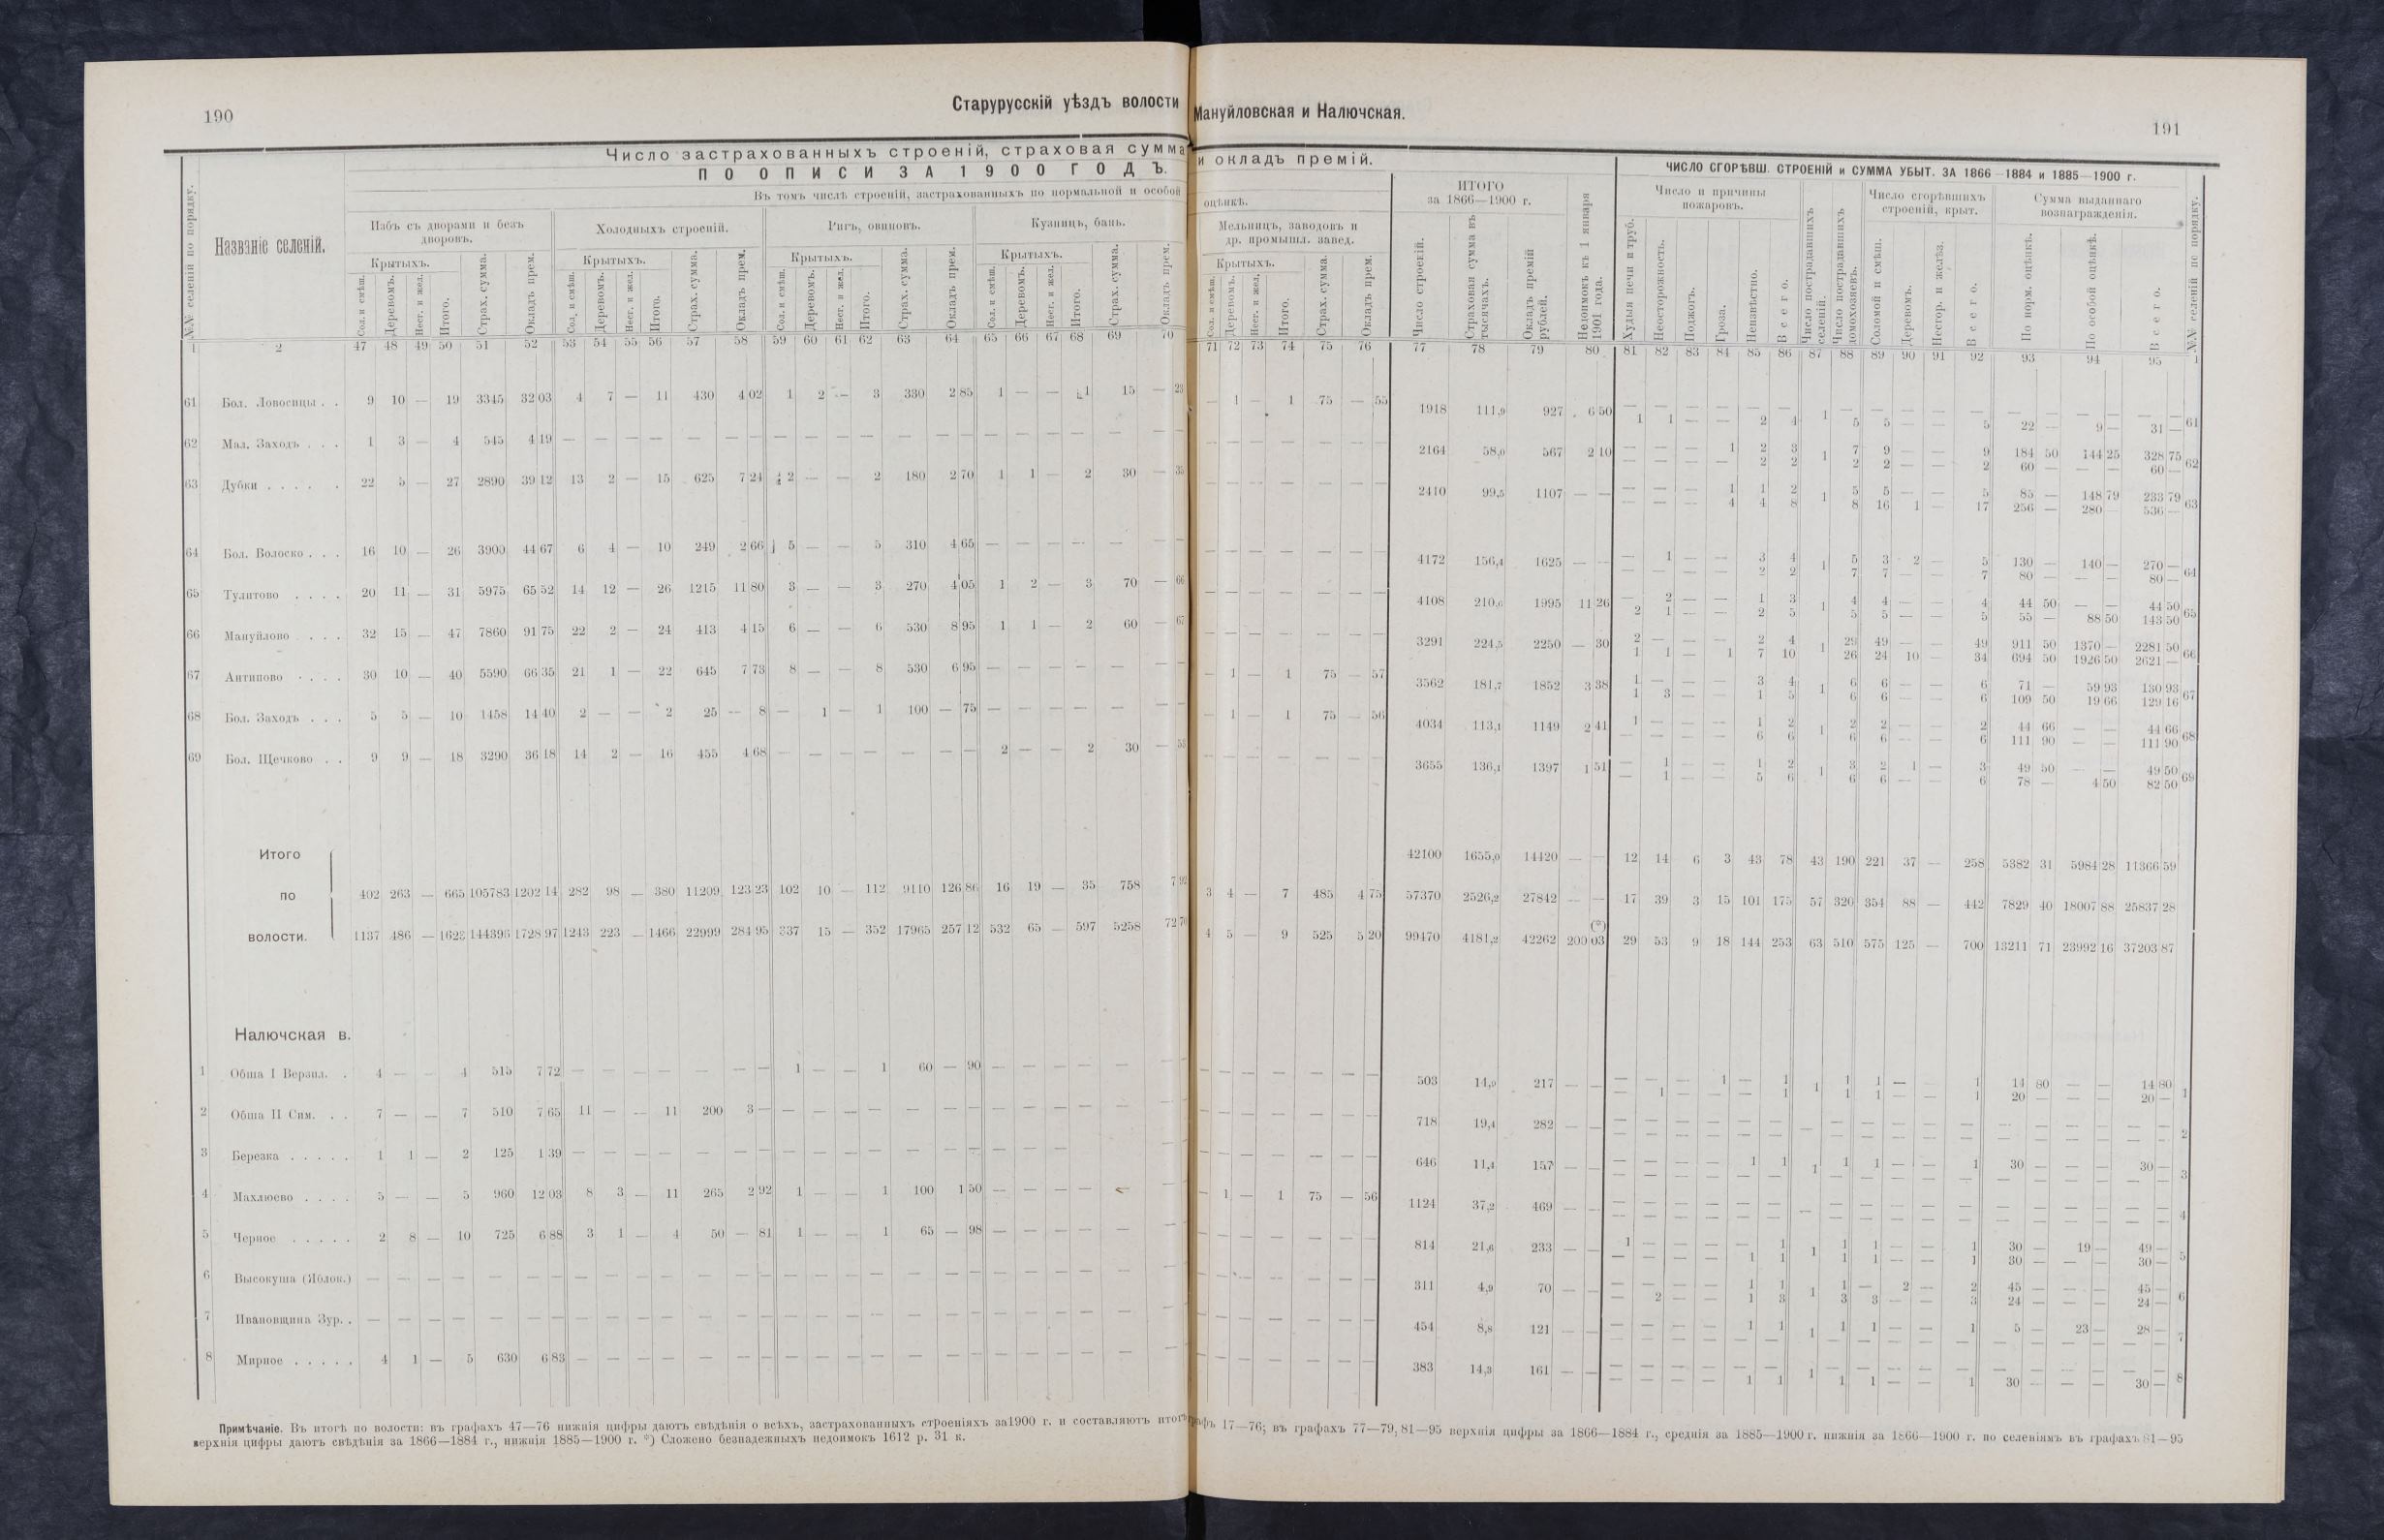 190
Старурусскій уѣздъ волости Мануйловская и Налючская.
191
Число застрахованныхъ строеній, страховая сумма и окладъ премій.
ПО ОПИСИ ЗА 1900 ГОДЪ.
Въ томъ числѣ строеній, застрахованныхъ по нормальной и особой оцѣнкѣ.
ЧИСЛО СГОРѢВШ. СТРОЕНІЙ и СУММА УБЫТ. ЗА 1866—1884 и 1885—1900 г.
№№ селеній по порядку.
Названіе селеній.
Избъ съ дворами и безъ дворовъ.
Холодныхъ строеній.
Ригъ, овиновъ.
Кузницъ, бань.
Мельницъ, заводовъ и др. промышл. завед.
ИТОГО за 1866—1900 г.
Недоимокъ къ 1 января 1901 года.
Число и причины пожаровъ.
Число пострадавшихъ селеній.
Число пострадавшихъ домохозяевъ.
Число сгорѣвшихъ строеній, крыт.
Сумма выданнаго вознагражденія.
№№ селеній по порядку.
Крытыхъ. Крытыхъ. Крытыхъ. Крытыхъ. Крытыхъ.
Сол. и смѣш. Деревомъ. Несг. и жел. Итого. Страх. сумма. Окладъ прем.
Сол. и смѣш. Деревомъ. Несг. и жел. Итого. Страх. сумма. Окладъ прем.
Сол. и смѣш. Деревомъ. Несг. и жел. Итого. Страх. сумма. Окладъ прем.
Сол. и смѣш. Деревомъ. Несг. и жел. Итого. Страх. сумма. Окладъ прем.
Сол. и смѣш. Деревомъ. Несг. и жел. Итого. Страх. сумма. Окладъ прем.
Число строеній. Страховая сумма въ тысячахъ. Окладъ премій рублей.
Худыя печи и труб. Неосторожность. Поджогъ. Гроза. Неизвѣстно. Всего.
Соломой и смѣш. Деревомъ. Несгор. и желѣз. Всего.
По норм. оцѣнкѣ. По особой оцѣнкѣ. Всего.
1 2 47 48 49 50 51 52 53 54 55 56 57 58 59 60 61 62 63 64 65 66 67 68 69 70 71 72 73 74 75 76 77 78 79 80 81 82 83 84 85 86 87 88 89 90 91 92 93 94 95 1
61 Бол. Ловосицы . . 9 10 — 19 3345 32 03 4 7 — 11 430 4 02 1 2 — 3 330 2 85 1 — — 1 15 — 23 — 1 — 1 75 — 55 1918 111,9 927 6 50 — — — — — — 1 — — — — — — — — — — — 61
1 1 — — 2 4 5 5 — — 5 22 — 9 — 31 —
62 Мал. Заходъ . . . 1 3 — 4 545 4 19 — — — — — — — — — — — — — — — — — — — — — — — — — — — 2164 58,0 567 2 10 — — — 1 2 3 1 7 9 — — 9 184 50 144 25 328 75 62
— — — — 2 2 2 2 — — 2 60 — — — 60 —
63 Дубки . . . . . 22 5 — 27 2890 39 12 13 2 — 15 625 7 24 2 — — 2 180 2 70 1 1 — 2 30 — 35 — — — — — — — 2410 99,5 1107 — — — — — 1 1 2 1 5 5 — — 5 85 — 148 79 233 79 63
— — — 4 4 8 8 16 1 — 17 256 — 280 — 536 —
64 Бол. Волоско . . . 16 10 — 26 3900 44 67 6 4 — 10 249 2 66 5 — — 5 310 4 65 — — — — — — — — — — — — — 4172 156,4 1625 — — — 1 — — 3 4 1 5 3 2 — 5 130 — 140 — 270 — 64
— — — — 2 2 7 7 — — 7 80 — — — 80 —
65 Тулитово . . . . 20 11 — 31 5975 65 52 14 12 — 26 1215 11 80 3 — — 3 270 4 05 1 2 — 3 70 — 66 — — — — — — — 4108 210,6 1995 11 26 — 2 — — 1 3 1 4 4 — — 4 44 50 — — 44 50 65
2 1 — — 2 5 5 5 — — 5 55 — 88 50 143 50
66 Мануйлово . . . . 32 15 — 47 7860 91 75 22 2 — 24 413 4 15 6 — — 6 530 8 95 1 1 — 2 60 — 67 — — — — — — — 3291 224,5 2250 — 30 2 — — — 2 4 1 29 49 — — 49 911 50 1370 — 2281 50 66
1 1 — 1 7 10 26 24 10 — 34 694 50 1926 50 2621 —
67 Антипово . . . . 30 10 — 40 5590 66 35 21 1 — 22 645 7 73 8 — — 8 530 6 95 — — — — — — — — 1 — 1 75 — 57 3562 181,7 1852 3 38 1 — — — 3 4 1 6 6 — — 6 71 — 59 93 130 93 67
1 3 — — 1 5 6 6 — — 6 109 50 19 66 129 16
68 Бол. Заходъ . . . 5 5 — 10 1458 14 40 2 — — 2 25 — 8 — 1 — 1 100 — 75 — — — — — — — — 1 — 1 75 — 56 4034 113,1 1149 2 41 1 — — — 1 2 1 2 2 — — 2 44 66 — — 44 66 68
— — — — 6 6 6 6 — — 6 111 90 — — 111 90
69 Бол. Щечково . . 9 9 — 18 3290 36 18 14 2 — 16 455 4 68 — — — — — — — 2 — — 2 30 — 55 — — — — — — — 3655 136,1 1397 1 51 — 1 — — 1 2 1 3 2 1 — 3 49 50 — — 49 50 69
— 1 — — 5 6 6 6 — — 6 78 — 4 50 82 50
Итого 42100 1655,0 14420 — — 12 14 6 3 43 78 43 190 221 37 — 258 5382 31 5984 28 11366 59
по 402 263 — 665 105783 1202 14 282 98 — 380 11209 123 23 102 10 — 112 9110 126 86 16 19 — 35 758 7 92 3 4 — 7 485 4 75 57370 2526,2 27842 — — 17 39 3 15 101 175 57 320 354 88 — 442 7829 40 18007 88 25837 28
волости. 1137 486 — 1623 144396 1728 97 1243 223 — 1466 22999 284 95 337 15 — 352 17965 257 12 532 65 — 597 5258 72 70 4 5 — 9 525 5 20 99470 4181,2 42262 (°) 200 03 29 53 9 18 144 253 63 510 575 125 — 700 13211 71 23992 16 37203 87
Налючская в.
1 Обша I Верзил. . 4 — — 4 515 7 72 — — — — — — — 1 — — 1 60 — 90 — — — — — — — — — — — — — 503 14,9 217 — — — — — 1 — 1 1 1 1 — — 1 14 80 — — 14 80 1
— 1 — — — 1 1 1 — — 1 20 — — — 20 —
2 Обша II Сим. . . 7 — — 7 510 7 65 11 — — 11 200 3 — — — — — — — — — — — — — — — — — — — — — 718 19,4 282 — — — — — — — — — — — — — — — — — — — — 2
— — — — — — — — — — — — — — — — —
3 Березка . . . . . 1 1 — 2 125 1 39 — — — — — — — — — — — — — — — — — — — — — — — — — 646 11,4 157 — — — — — — 1 1 1 1 1 — — 1 30 — — — 30 — 3
— — — — — — — — — — — — — — — — —
4 Махлюево . . . . 5 — — 5 960 12 03 8 3 — 11 265 2 92 1 — — 1 100 1 50 — — — — — — — 1 — 1 75 — 56 1124 37,2 469 — — — — — — — — — — — — — — — — — — — — 4
— — — — — — — — — — — — — — — — —
5 Черное . . . . . 2 8 — 10 725 6 88 3 1 — 4 50 — 81 1 — — 1 65 — 98 — — — — — — — — — — — — — 814 21,6 233 — — 1 — — — — 1 1 1 1 — — 1 30 — 19 — 49 — 5
— — — — 1 1 1 1 — — 1 30 — — — 30 —
6 Высокуша (Яблон.) — — — — — — — — — — — — — — — — — — — — — — — — — — — — — — 311 4,9 70 — — — — — — 1 1 1 1 — 2 — 2 45 — — — 45 — 6
— 2 — — 1 3 3 3 — — 3 24 — — — 24 —
7 Ивановщина Зур. . — — — — — — — — — — — — — — — — — — — — — — — — — — — — — — 454 8,8 121 — — — — — — 1 1 1 1 1 — — 1 5 — 23 — 28 — 7
— — — — — — — — — — — — — — — — —
8 Мирное . . . . . 4 1 — 5 630 6 83 — — — — — — — — — — — — — — — — — — — — — — — — — 383 14,3 161 — — — — — — — — 1 — — — — — — — — — — — 8
— — — — 1 1 1 1 — — 1 30 — — — 30 —
Примѣчаніе. Въ итогѣ по волости: въ графахъ 47—76 нижнія цифры даютъ свѣдѣнія о всѣхъ, застрахованныхъ строеніяхъ за 1900 г. и составляютъ итогъ графъ 17—76; въ графахъ 77—79, 81—95 верхнія цифры за 1866—1884 г., среднія за 1885—1900 г. нижнія за 1866—1900 г. по селеніямъ въ графахъ 81—95
верхнія цифры даютъ свѣдѣнія за 1866—1884 г., нижнія 1885—1900 г. °) Сложено безнадежныхъ недоимокъ 1612 р. 31 к.